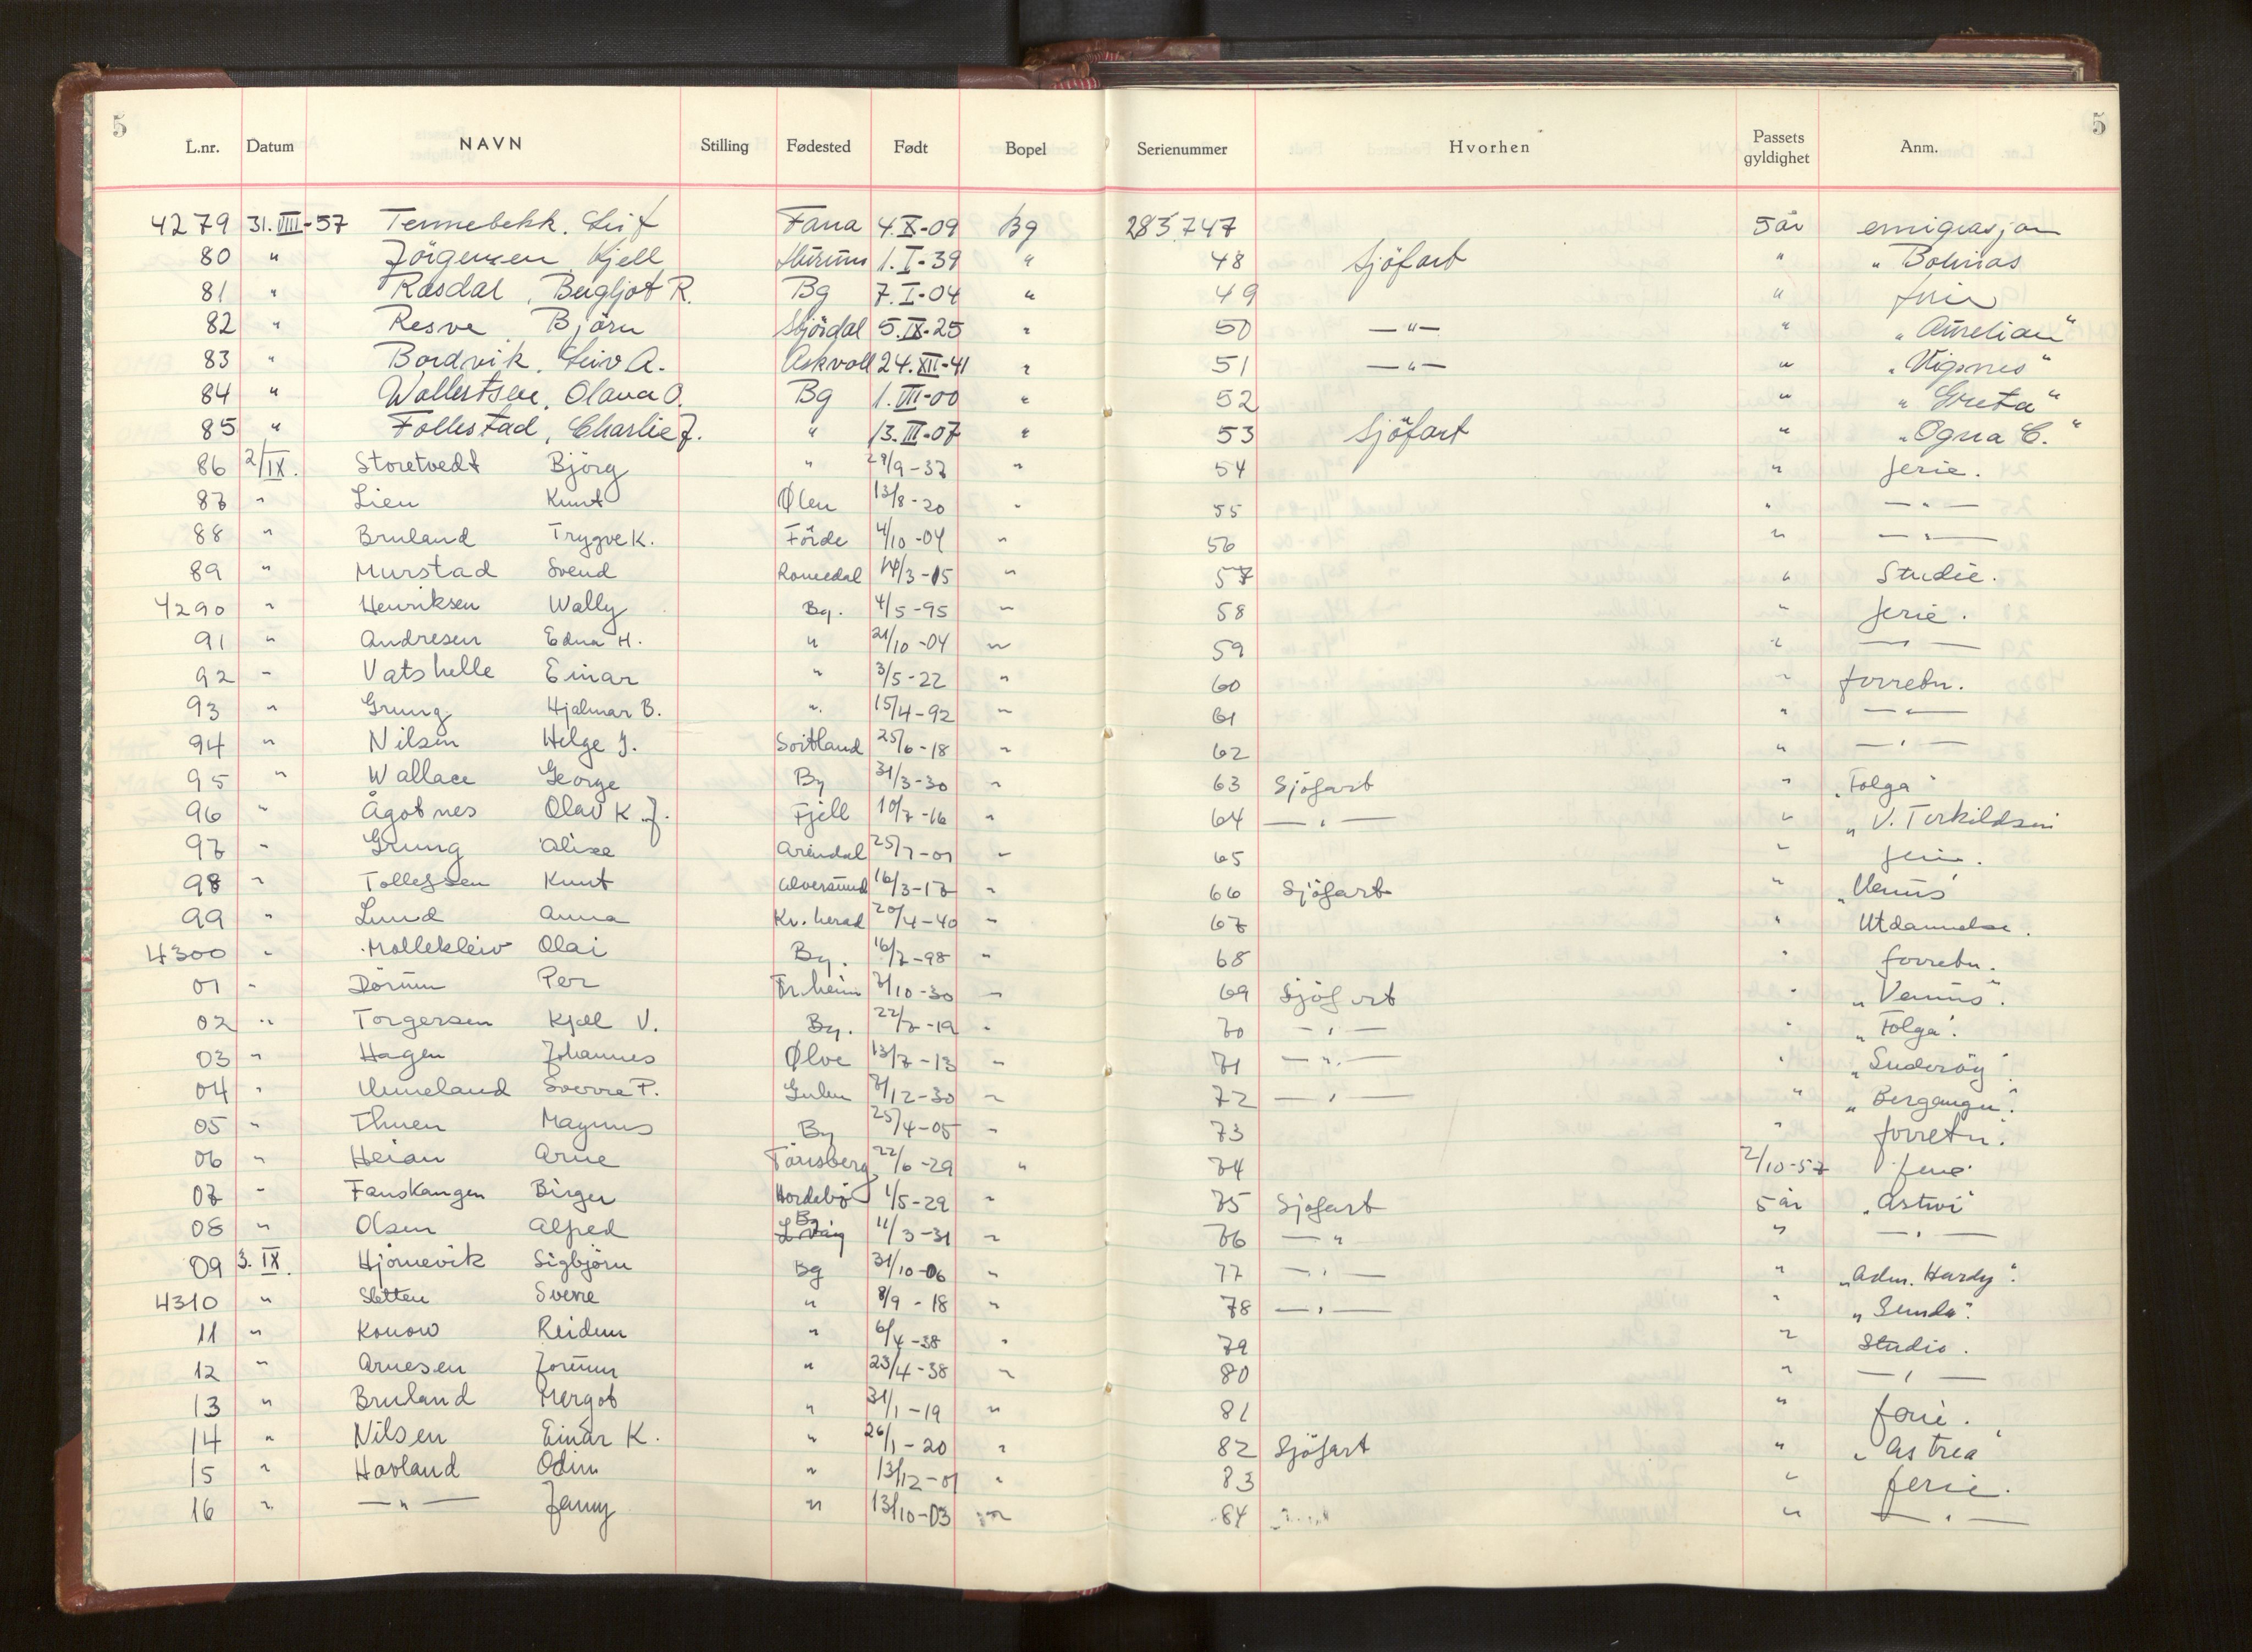 5 5
L.nr. Datum NAVN Stilling Fødested Født Bopel Serienummer Hvorhen Passets gyldighet Anm.
4279 31.VIII-57 Tennebekk, Leif Fana 4.X-09 Bg 285747 5 år emigrasjon
80 " Jörgensen, Kjell 1.I-39 " 48 Sjöfart " "
81 " Rasdal, Bergljot R. Bg 7.I-04 " 49 " ferie
82 " Resve Björn Stjördal 5.IX-25 " 50 —"— " "Aurelian"
83 " Bordvik, Leiv A. Askvoll 24.XII-41 " 51 —"— " "Vigsnes"
84 " Wollertsen, Olava O. Bg 1.VII-00 " 52 " "Greta"
85 " Follestad, Charlie J. " 13.III-07 " 53 Sjöfart " "Ogna C."
86 2/IX. Storetvedt Björg " 29/9-37 " 54 " ferie.
87 " Lien Knut Ølen 13/8-20 " 55 " —"—
88 " Bruland Trygve K. Förde 4/10-04 " 56 " —"—
89 " Murstad Svend Romedal 14/3-15 " 57 " Studie.
4290 " Henriksen Wally Bg. 4/5-95 " 58 " ferie.
91 " Andresen Edna H. " 21/10-04 " 59 " —"—
92 " Vatshelle Einar " 3/5-22 " 60 " forretn.
93 " Grung Hjalmar B. " 15/4-92 " 61 " —"—
94 " Nilsen Helge J. Soitland 25/6-18 " 62 " —"—
95 " Wallace George Bg 31/3-30 " 63 Sjöfart " "Tolga"
96 " Ågotnes Olav K. J. Fjell 10/7-16 " 64 —"— " "V. Torkildsen
97 " Grung Alise Arendal 25/7-01 " 65 " ferie.
98 " Tollefsen Knut Alversund 16/3-17 " 66 Sjöfart " "Venus"
99 " Lund Anna Kv.herad 20/4-40 " 67 " Utdannelse.
4300 " Mollekleiv Olai Bg. 16/7-98 " 68 " forretn.
01 " Dörum Per Tr.heim 3/10-30 " 69 Sjöfart " "Venus".
02 " Torgersen Kjell V. Bg. 22/7-19 " 70 —"— " "Tolga".
03 " Hagen Johannes Ølve 13/7-13 " 71 —"— " "Suderöy".
04 " Unneland Sverre P. Gulen 7/12-30 " 72 —"— " "Bergangen".
05 " Thuen Magnus Bg 25/4-05 " 73 " forretn.
06 " Heian Arne Tönsberg 22/6-29 " 74 2/10-57 ferie
07 " Fanskangen Birger Hordabö 1/5-29 " 75 Sjöfart 5 år "Astivi"
08 " Olsen Alfred Bg 11/3-31 " 76 —"— " —"—
09 3.IX. Hjörnevik Sigbjörn Bg 31/10-06 " 77 —"— " "Adm. Hardy".
4310 " Sletten Sverre " 8/9-18 " 78 —"— " "Sunda".
11 " Konow Reidun " 6/4-38 " 79 " Studie.
12 " Arnesen Jorunn " 23/4-38 " 80 " —"—
13 " Bruland Mergot " 31/1-19 " 81 " ferie.
14 " Nilsen Einar K. " 26/1-20 " 82 Sjöfart " "Astrea"
15 " Havland Odin " 13/12-01 " 83 " ferie.
16 " —"— Jenny " 13/10-03 " 84 " —"—